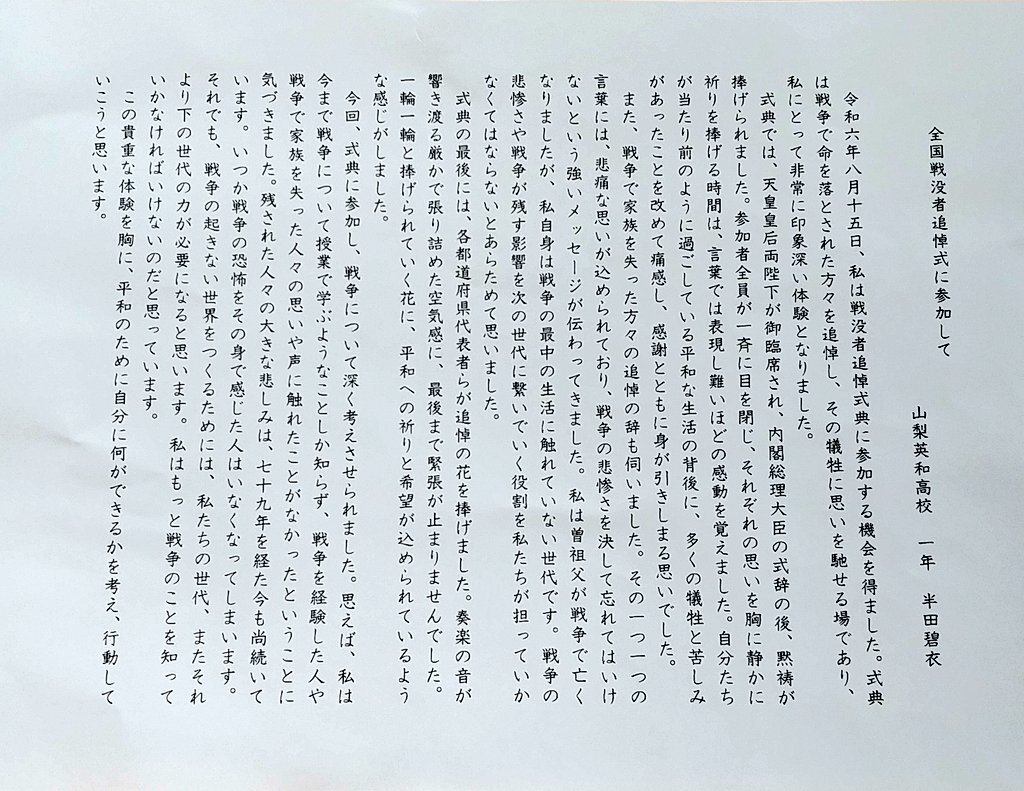 全国戦没者追悼式に参加して
山梨英和高校　一年　半田碧衣
令和六年八月十五日、私は戦没者追悼式典に参加する機会を得ました。式典
は戦争で命を落とされた方々を追悼し、その犠牲に思いを馳せる場であり、
私にとって非常に印象深い体験となりました。
式典では、天皇皇后両陛下が御臨席され、内閣総理大臣の式辞の後、黙祷が
捧げられました。参加者全員が一斉に目を閉じ、それぞれの思いを胸に静かに
祈りを捧げる時間は、言葉では表現し難いほどの感動を覚えました。自分たち
が当たり前のように過ごしている平和な生活の背後に、多くの犠牲と苦しみ
があったことを改めて痛感し、感謝とともに身が引きしまる思いでした。
また、戦争で家族を失った方々の追悼の辞も伺いました。その一つ一つの
言葉には、悲痛な思いが込められており、戦争の悲惨さを決して忘れてはいけ
ないという強いメッセージが伝わってきました。私は曽祖父が戦争で亡く
なりましたが、私自身は戦争の最中の生活に触れていない世代です。戦争の
悲惨さや戦争が残す影響を次の世代に繋いでいく役割を私たちが担っていか
なくてはならないとあらためて思いました。
式典の最後には、各都道府県代表者らが追悼の花を捧げました。奏楽の音が
響き渡る厳かで張り詰めた空気感に、最後まで緊張が止まりませんでした。
一輪一輪と捧げられていく花に、平和への祈りと希望が込められているよう
な感じがしました。
今回、式典に参加し、戦争について深く考えさせられました。思えば、私は
今まで戦争について授業で学ぶようなことしか知らず、戦争を経験した人や
戦争で家族を失った人々の思いや声に触れたことがなかったということに
気づきました。残された人々の大きな悲しみは、七十九年を経た今も尚続いて
います。いつか戦争の恐怖をその身で感じた人はいなくなってしまいます。
それでも、戦争の起きない世界をつくるためには、私たちの世代、またそれ
より下の世代の力が必要になると思います。私はもっと戦争のことを知って
いかなければいけないのだと思っています。
この貴重な体験を胸に、平和のために自分に何ができるかを考え、行動して
いこうと思います。